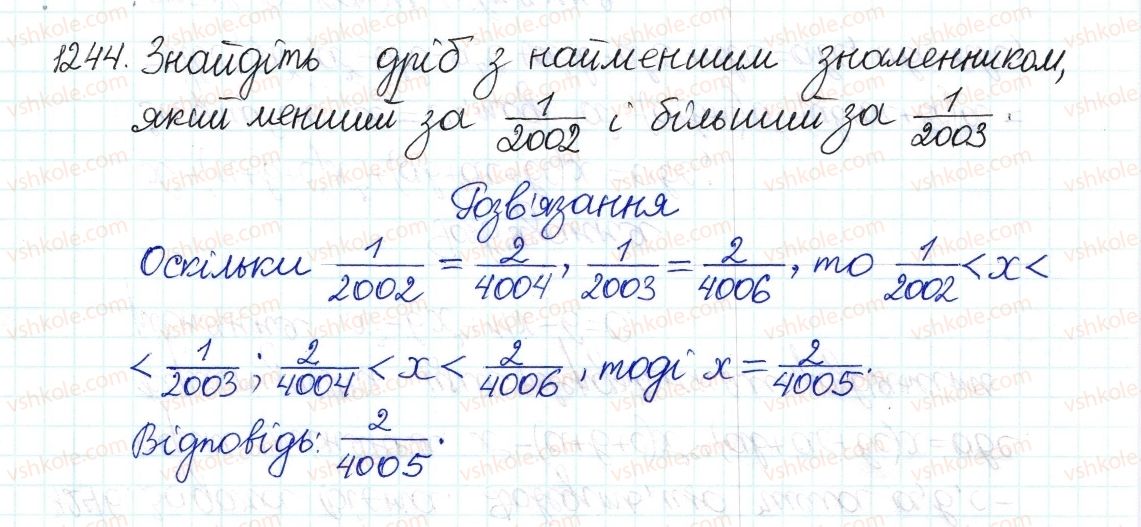 1244. Знайдіть дріб з найменшим знаменником,
який менший за 1/2002 і більший за 1/2003.
Розв'язання
Оскільки 1/2002 = 2/4004, 1/2003 = 2/4006, то 1/2002 < x <
< 1/2003; 2/4004 < x < 2/4006, тоді x = 2/4005.
Відповідь: 2/4005.